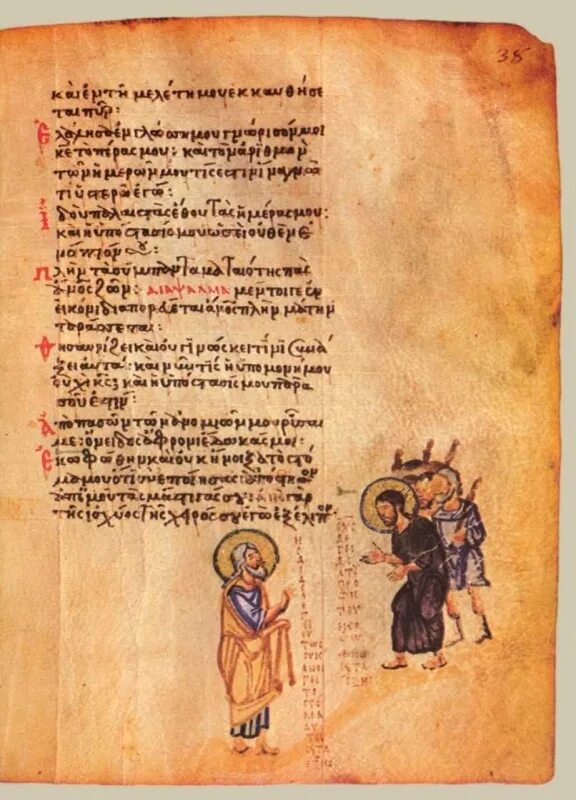 38
καὶ ἐν τῇ μελέτη μου ἐκκαυθήσε
ται πῦρ:
Ελάλησα ἐν γλώσσῃ μου γνώρισόν μοι
κε τὸ πέρας μου: καὶ τὸν ἀριθμὸν
τῶν ἡμερῶν μου τίς ἐστιν ἵνα γνῶ
τί ὑστερῶ ἐγώ:
Ιδοὺ παλαιστὰς ἔθου τὰς ἡμέρας μου:
καὶ ἡ ὑπόστασίς μου ὡσεὶ οὐθὲν ἐ
νώπιόν σου:
Πλὴν τὰ σύμπαντα ματαιότης πᾶς
ἄνος ζῶν: ΔΙΑΨΑΛΜΑ μέντοιγε ἐν
εἰκόνι διαπορεύεται ἄνος πλὴν μάτην
ταράσσεται:
Θησαυρίζει καὶ οὐ γινώσκει τίνι συνά
ξει αὐτά: καὶ νῦν τίς ἡ ὑπομονή μου
οὐχὶ κς καὶ ἡ ὑπόστασίς μου παρὰ
σοῦ ἐστιν:
Απὸ πασῶν τῶν ἀνομιῶν μου ῥῦσαί
με: ὄνειδος ἄφρονι ἔδωκάς με:
Εκωφώθην καὶ οὐκ ἤνοιξα τὸ στό
μα μου ὅτι σὺ ἐποίησας ἀπόστησον
ἀπ' ἐμοῦ τὰς μάστιγάς σου ἀπὸ γὰρ
τῆς ἰσχύος τῆς χειρός σου ἐγὼ ἐξέλιπον